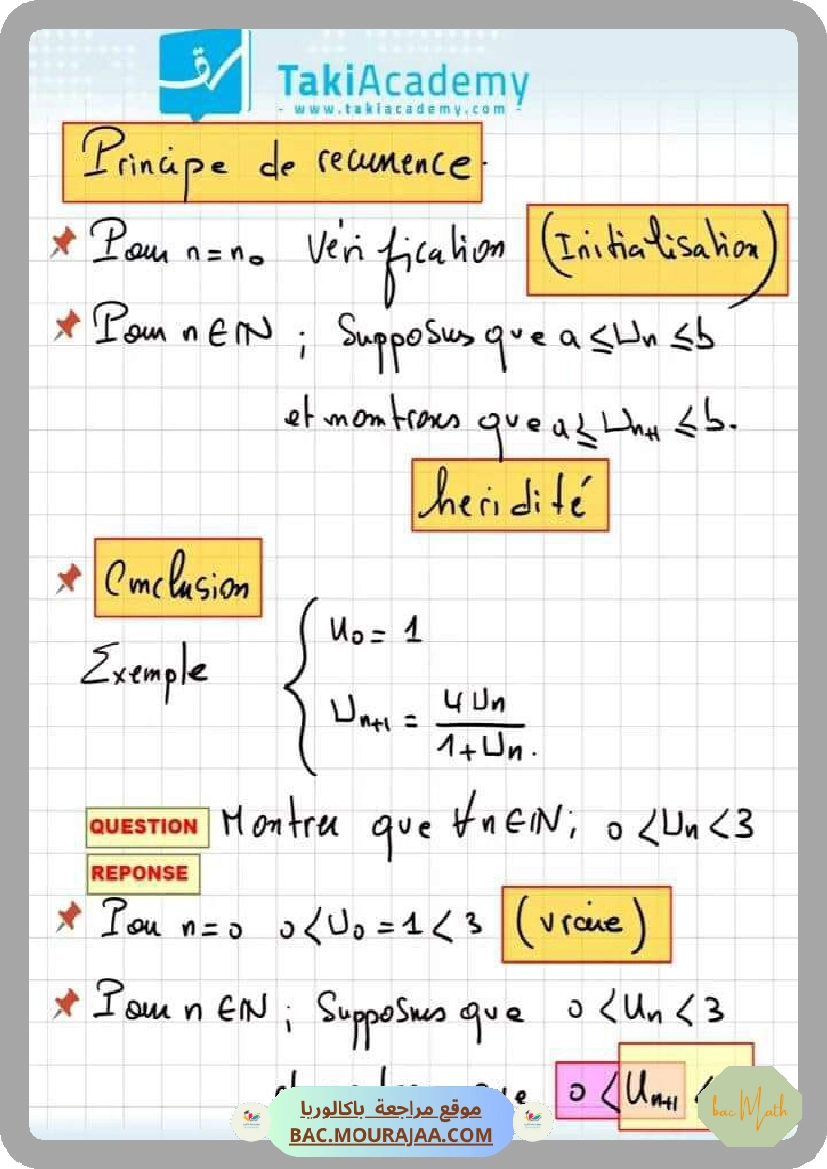 TakiAcademy
- www.takiacademy.com -
Principe de recurrence.
Pour n = n₀ Vérification (Initialisation)
Pour n ∈ ℕ ; Supposons que a ≤ Uₙ ≤ b
et montrons que a ≤ Uₙ₊₁ ≤ b.
heridité
Conclusion
Exemple
U₀ = 1
Uₙ₊₁ = 4Uₙ / 1+Uₙ.
QUESTION Montrer que ∀n∈ℕ; 0 < Uₙ < 3
REPONSE
Pou n = 0 0 < U₀ = 1 < 3 (vraie)
Pour n ∈ ℕ ; Supposons que 0 < Uₙ < 3
0 < Uₙ₊₁ <
موقع مراجعة باكالوريا
BAC.MOURAJAA.COM
bac Math